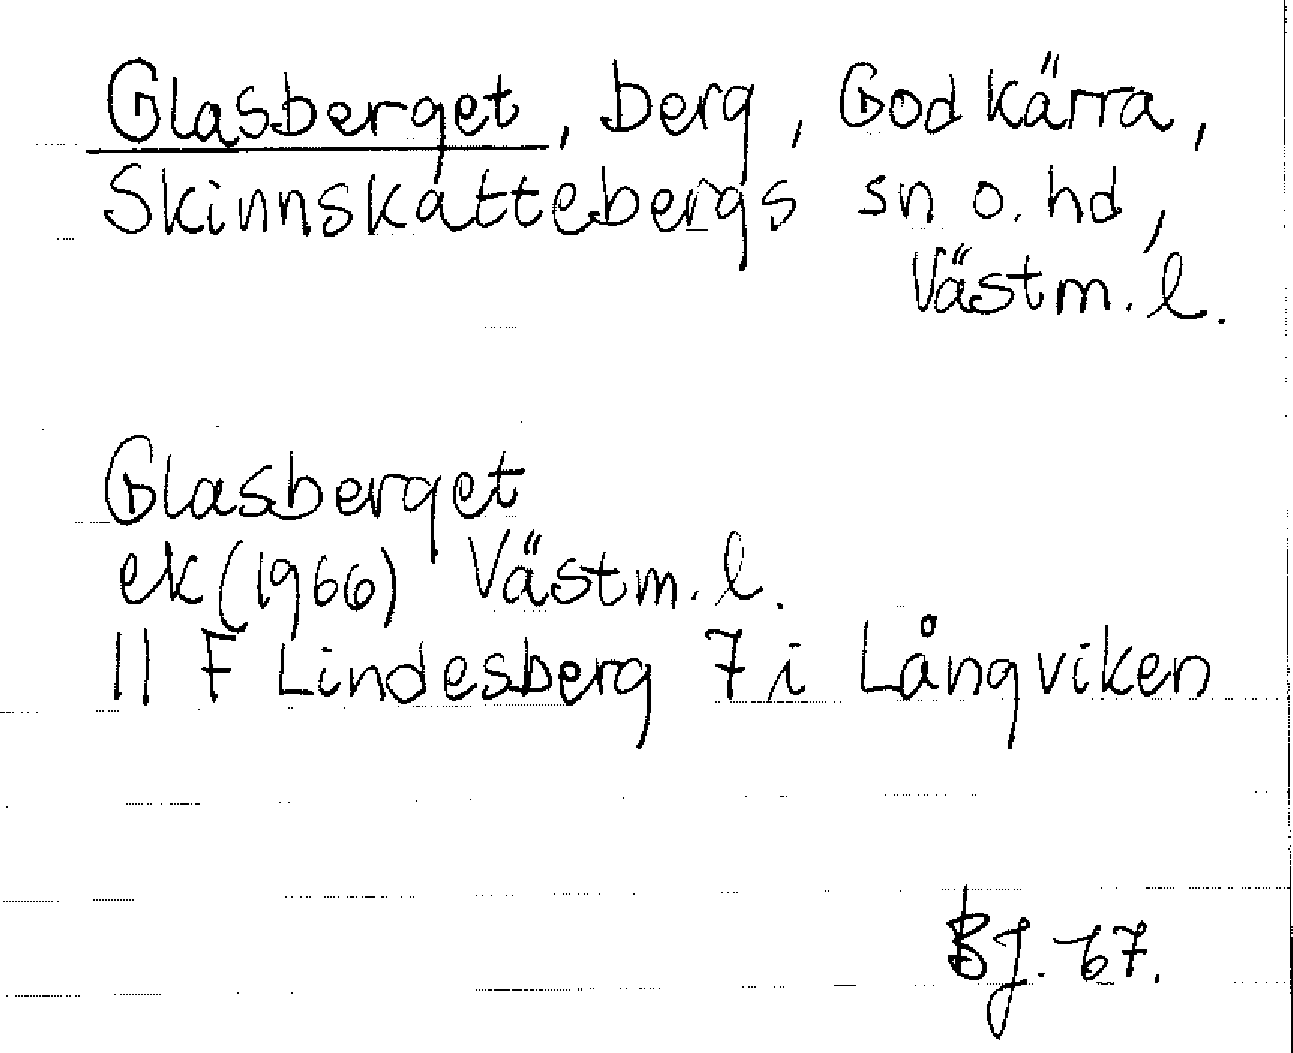 Glasberget, berg, Godkärra,
Skinnskattebergs sn o. hd,
Västm. l.
Glasberget
ek (1966) Västm. l.
11 F Lindesberg 7 i Långviken
BJ. 67.